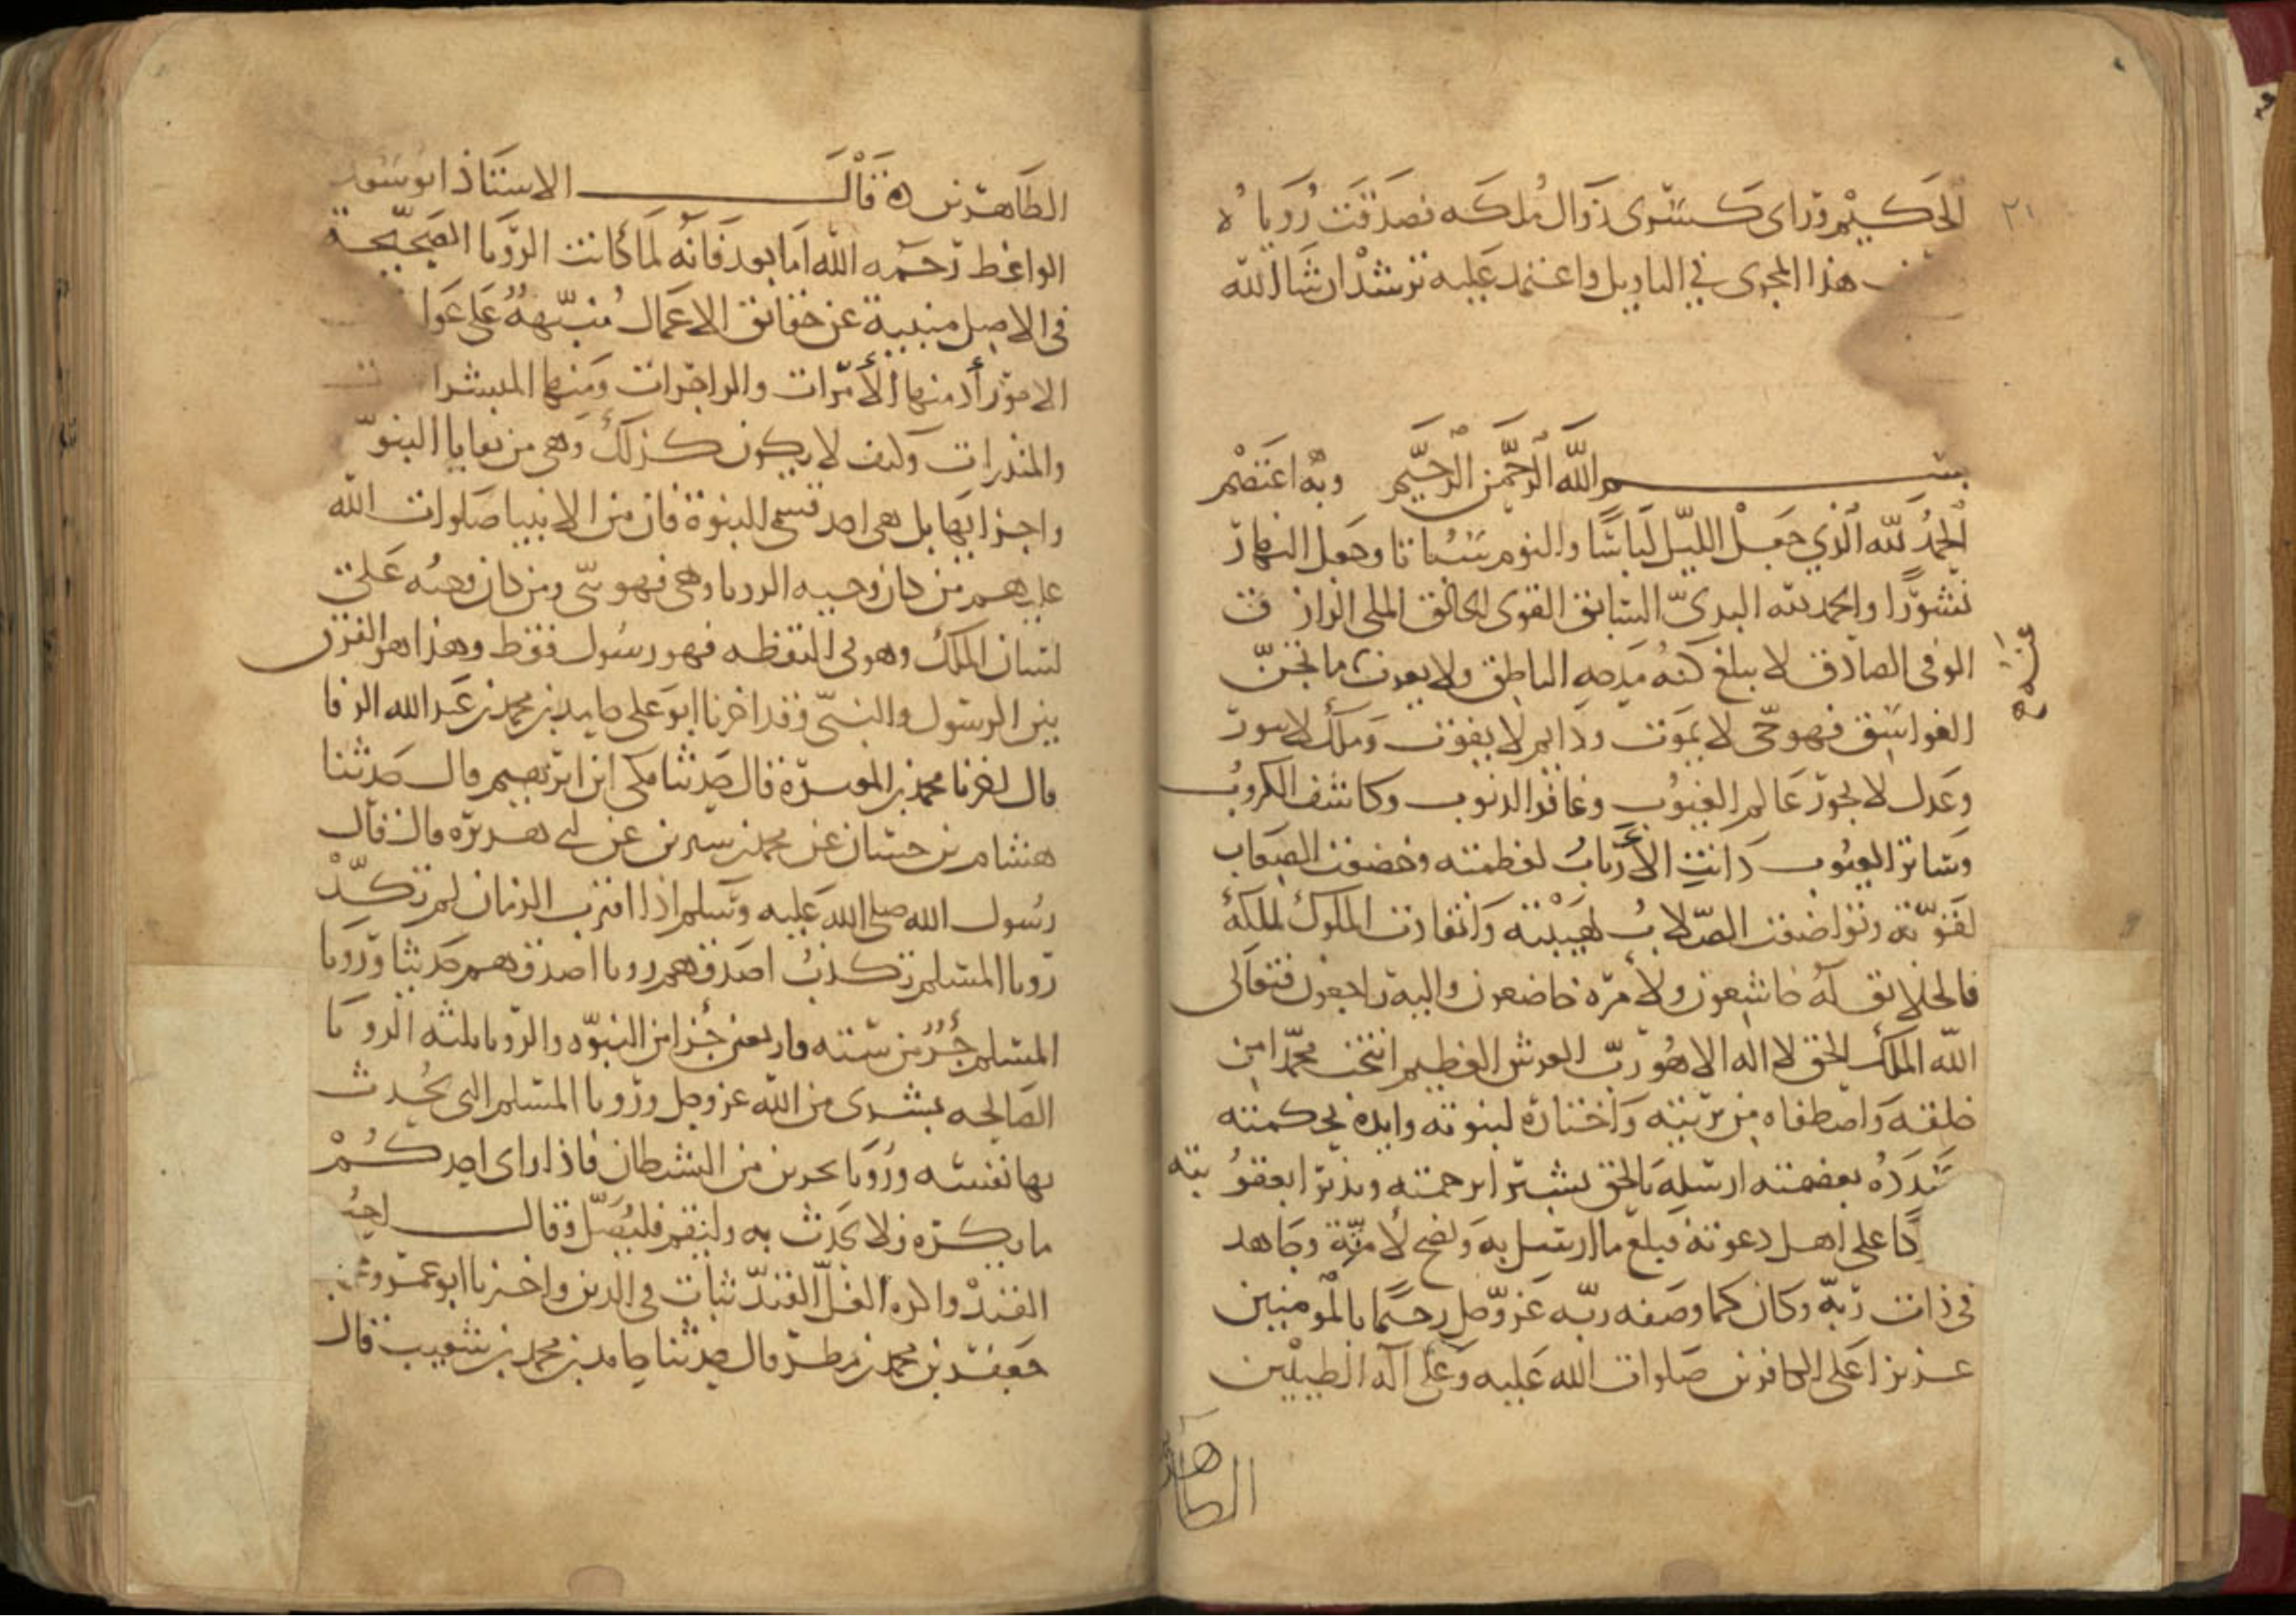 ٢١
الحكيم وراى كسرى زوال ملكه فصدقت روياه
هذا المجرى في التاويل واعتمد عليه ترشد ان شا الله
بسم الله الرحمن الرحيم وبه اعتصم
الحمد لله الذي جعل الليل لباسا والنوم سباتا وجعل النهار
نشورا والحمد لله البدي السابق القوى الخالق الملى الرازق
الوفى الصادق لا يبلغ كنه مدحه الناطق ولا يعزب ما تجن
الغواسق فهو حى لا يموت ودايم لا يفوت وملك لا يبور
وعدل لا يجور عالم الغيوب وغافر الذنوب وكاشف الكروب
وساتر العيوب دانت الأرباب لعظمته وخضعت الصعاب
لقوته وتواضعت الصلاب لهيبته وانقادت الملوك لملكه
فالخلايق له خاشعون ولأمره خاضعون واليه راجعون فتعالى
الله الملك الحق لا اله الا هو رب العرش العظيم انتخب محمدا من
خلقه واصطفاه من بريته واختاره لنبوته وايده بحكمته
وسدده بعصمته ارسله بالحق بشيرا برحمته ونذيرا بعقوبته
على اهل دعوته فبلغ ما ارسل به ونصح لأمته وجاهد
فى ذات ربه وكان كما وصفه ربه عز وجل رحيما بالمومنين
عزيزا على الكافرين صلوات الله عليه وعلى آله الطيبين
الطاهرين
الطاهرين ه قال الاستاذ ابو سعد
الواعظ رحمه الله اما بعد فانه لما كانت الرويا الصحيحة
فى الاصل منبية عن حقايق الاعمال منبهة على عوا
الامور أذ منها الأمرات والزاجرات ومنها المبشرات
والمنذرات وكيف لا يكون كذلك وهى من بقايا النبوة
واجزايها بل هى احد قسمى النبوة فان من الانبيا صلوات الله
عليهم من كان وحيه الرويا وهى فهو نبى ومن كان وحيه على
لسان الملك وهو فى اليقظه فهو رسول فقط وهذا هو الفرق
بين الرسول والنبى وقد اخبرنا ابو على حامد بن محمد بن عبد الله الرفا
قال اخبرنا محمد بن المغيرة قال حدثنا مكى ابن ابرهيم قال حدثنا
هشام بن حسان عن محمد بن سيرين عن ابى هريره قال قال
رسول الله صلى الله عليه وسلم اذا اقترب الزمان لم تكد
رويا المسلم تكذب اصدقهم رويا اصدقهم حديثا ورويا
المسلم جزء من سته واربعين جزا من النبوه والرويا ثلثه الرويا
الصالحه بشرى من الله عز وجل ورويا المسلم التى يحدث
بها نفسه ورويا تحزين من الشيطان فاذا راى احدكم
ما يكره فلا يحدث به وليقم فليصل وقال احب
القيد واكره الغل القيد ثبات فى الدين واخبرنا ابو عمرو محمد بن
جعفر بن محمد بن مطر قال حدثنا حامد بن محمد بن شعيب قال